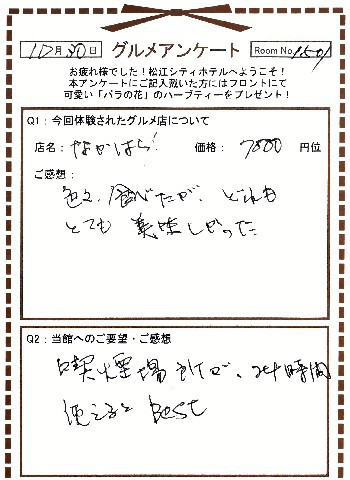 10月30日 グルメアンケート Room No. 1501
お疲れ様でした！松江シティホテルへようこそ！
本アンケートにご記入戴いた方にはフロントにて
可愛い「バラの花」のハーブティーをプレゼント！
Q1：今回体験されたグルメ店について
店名：なかはら 価格：7800 円位
ご感想：
色々食べたが、どれも
とても美味しかった
Q2：当館へのご要望・ご感想
喫煙場所が、24時間
使えると Best